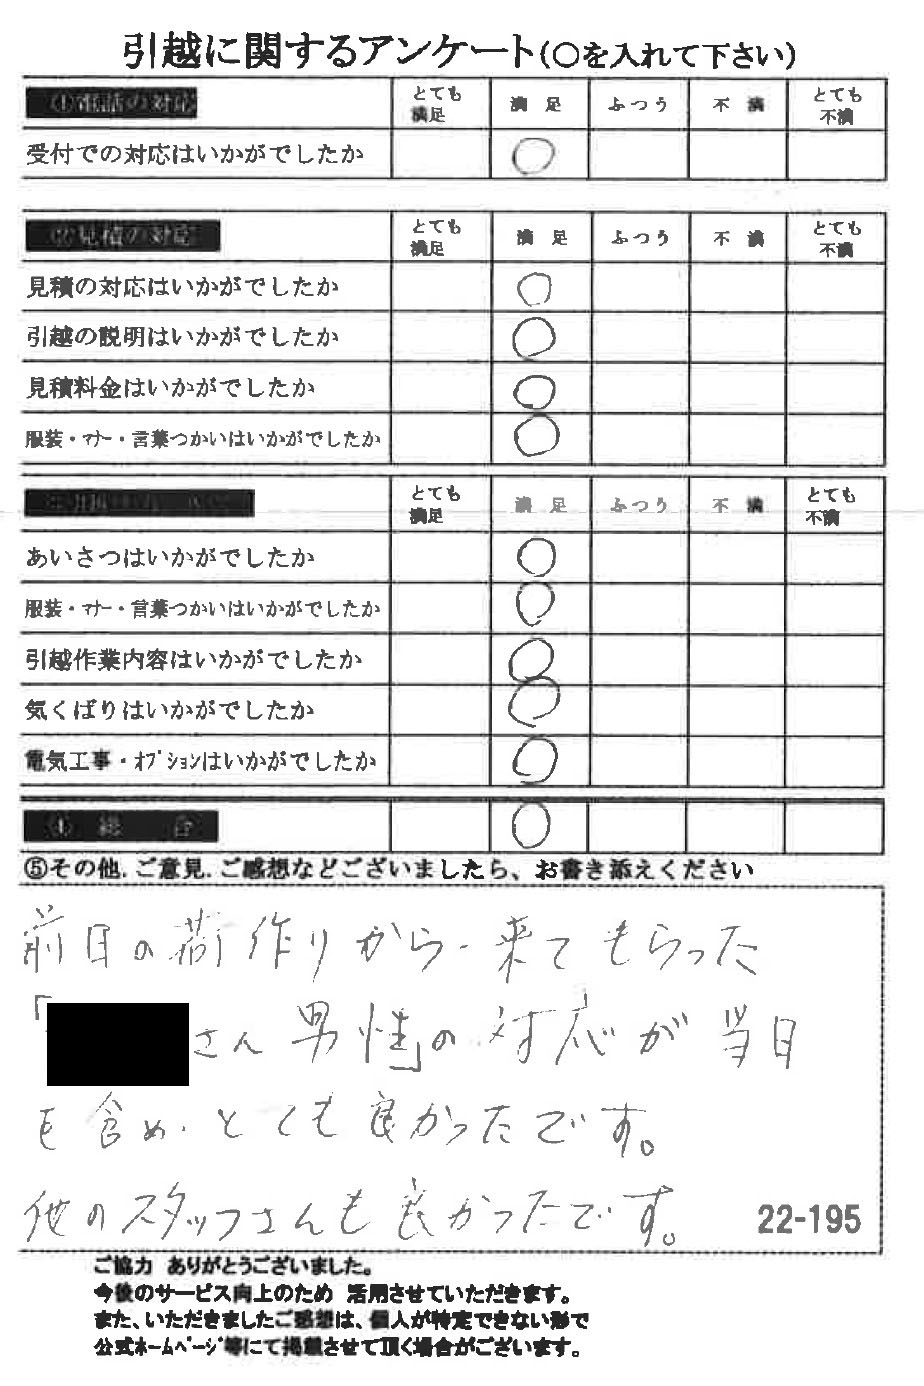 引越に関するアンケート(○を入れて下さい)
①電話の対応 とても満足 満足 ふつう 不満 とても不満
受付での対応はいかがでしたか ○
②見積の対応 とても満足 満足 ふつう 不満 とても不満
見積の対応はいかがでしたか ○
引越の説明はいかがでしたか ○
見積料金はいかがでしたか ○
服装・マナー・言葉つかいはいかがでしたか ○
とても満足 満足 ふつう 不満 とても不満
あいさつはいかがでしたか ○
服装・マナー・言葉つかいはいかがでしたか ○
引越作業内容はいかがでしたか ○
気くばりはいかがでしたか ○
電気工事・オプションはいかがでしたか ○
④総合 ○
⑤その他.ご意見.ご感想などございましたら、お書き添えください
前日の荷作りから、来てもらった
「 さん 男性」の対応が当日
も含め、とても良かったです。
他のスタッフさんも良かったです。
22-195
ご協力 ありがとうございました。
今後のサービス向上のため 活用させていただきます。
また、いただきましたご感想は、個人が特定できない形で
公式ホームページ等にて掲載させて頂く場合がございます。